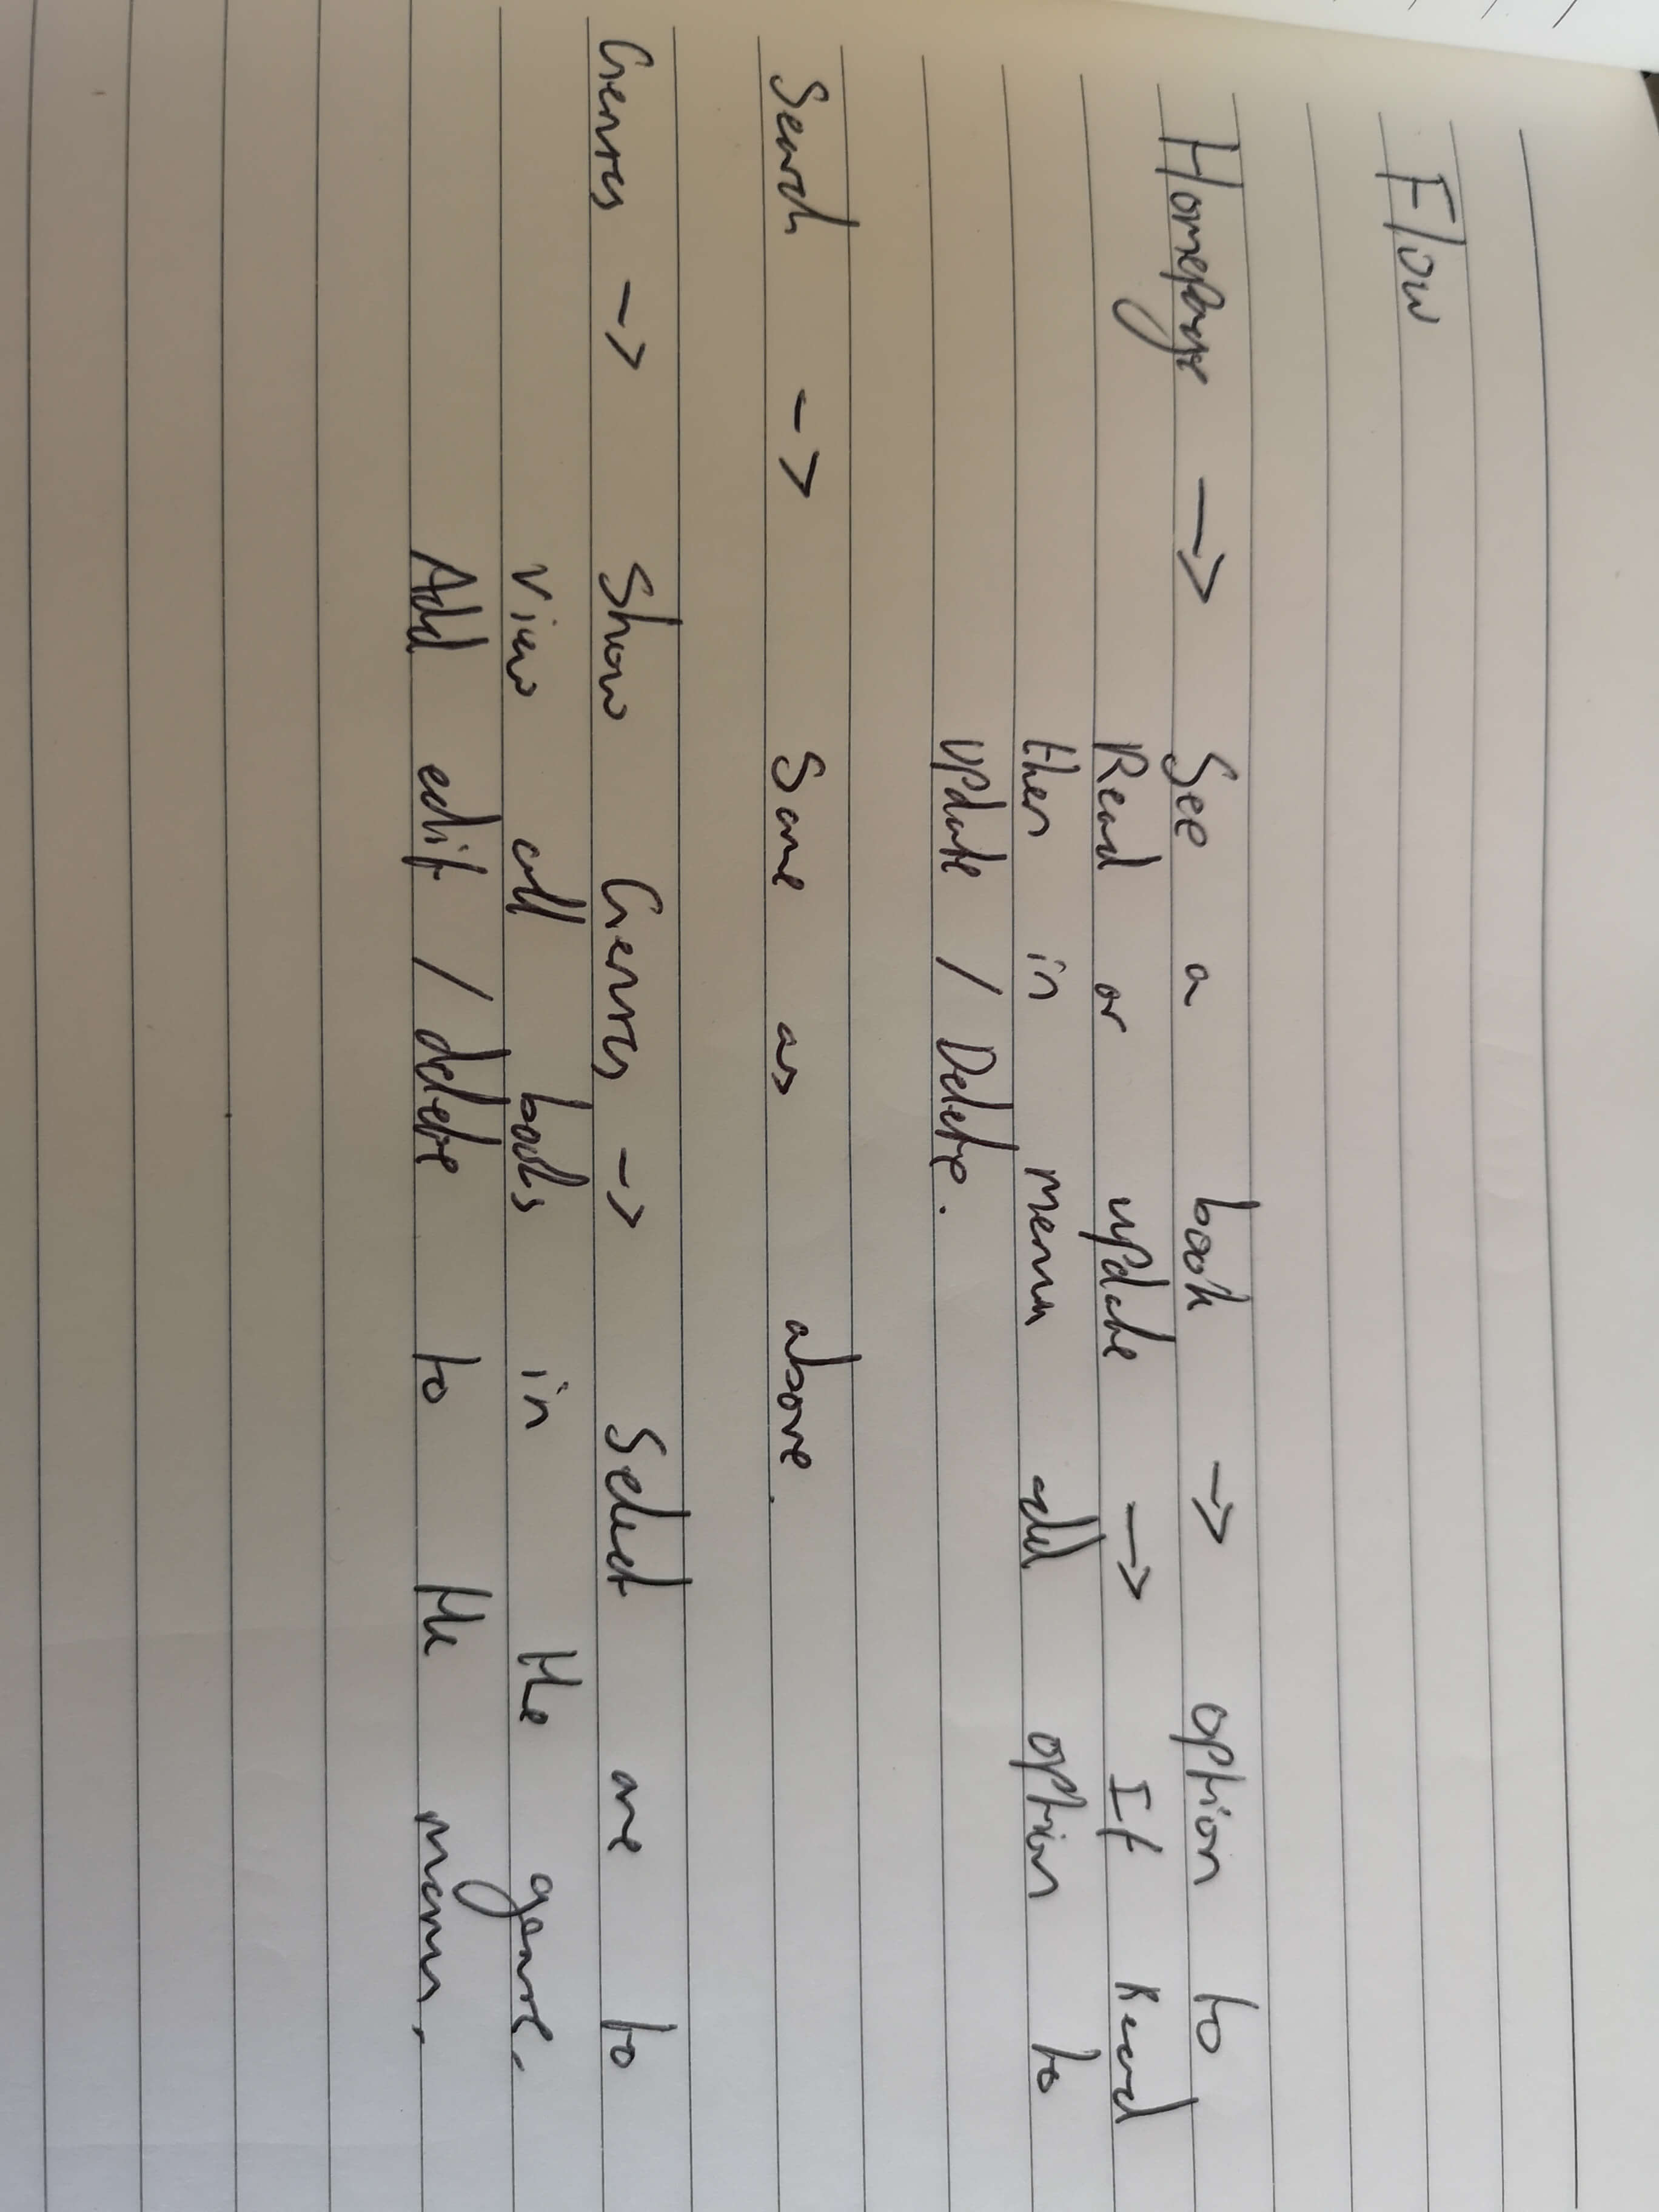 Flow
Homepage -> See a book -> option to
Read or update -> If Read
then in menu add option to
update / Delete.
Search -> Same as above.
Genres -> Show Genres -> Select one to
view all books in the genre.
Add edit / delete to the menu.